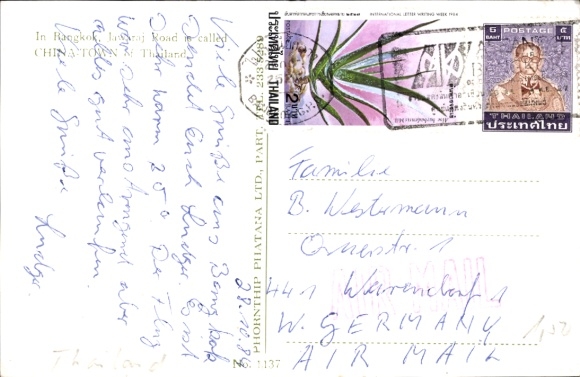 In Bangkok, Jawaraj Road is called
CHINA TOWN of Thailand.
Viele Grüße aus Bangkok
sendet Euch Ludger. Es ist
sehr warm 25° Der Flug
war sehr anstrengend aber
alles gut verlaufen.
Viele Grüße
Ludger.
28.10.86
Thailand
PHORNTHIP PHATANA LTD., PART. TEL.
No. 1137
INTERNATIONAL LETTER WRITING WEEK
ประเทศไทย THAILAND
2 บาท
5 BAHT POSTAGE ๕ บาท
THAILAND
ประเทศไทย
Familie
B. Westermann
str. 1
441 Warendorf 1
W. GERMANY
AIR MAIL
AIR MAIL
1,50